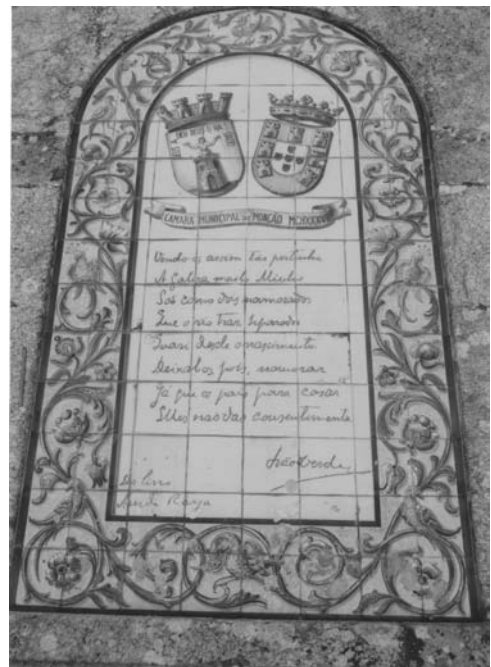 CAMARA MUNICIPAL DE MONÇÃO
Vendo-os assim tão pertinho
A Galiza mail'o Minho
São como dois namorados
Que o rio traz separados
Quasi desde o nascimento
Deixal-os pois, namorar
Já que os pais para casar
Lhes não dão consentimento
João Verde
Do livro
Ares da Raya